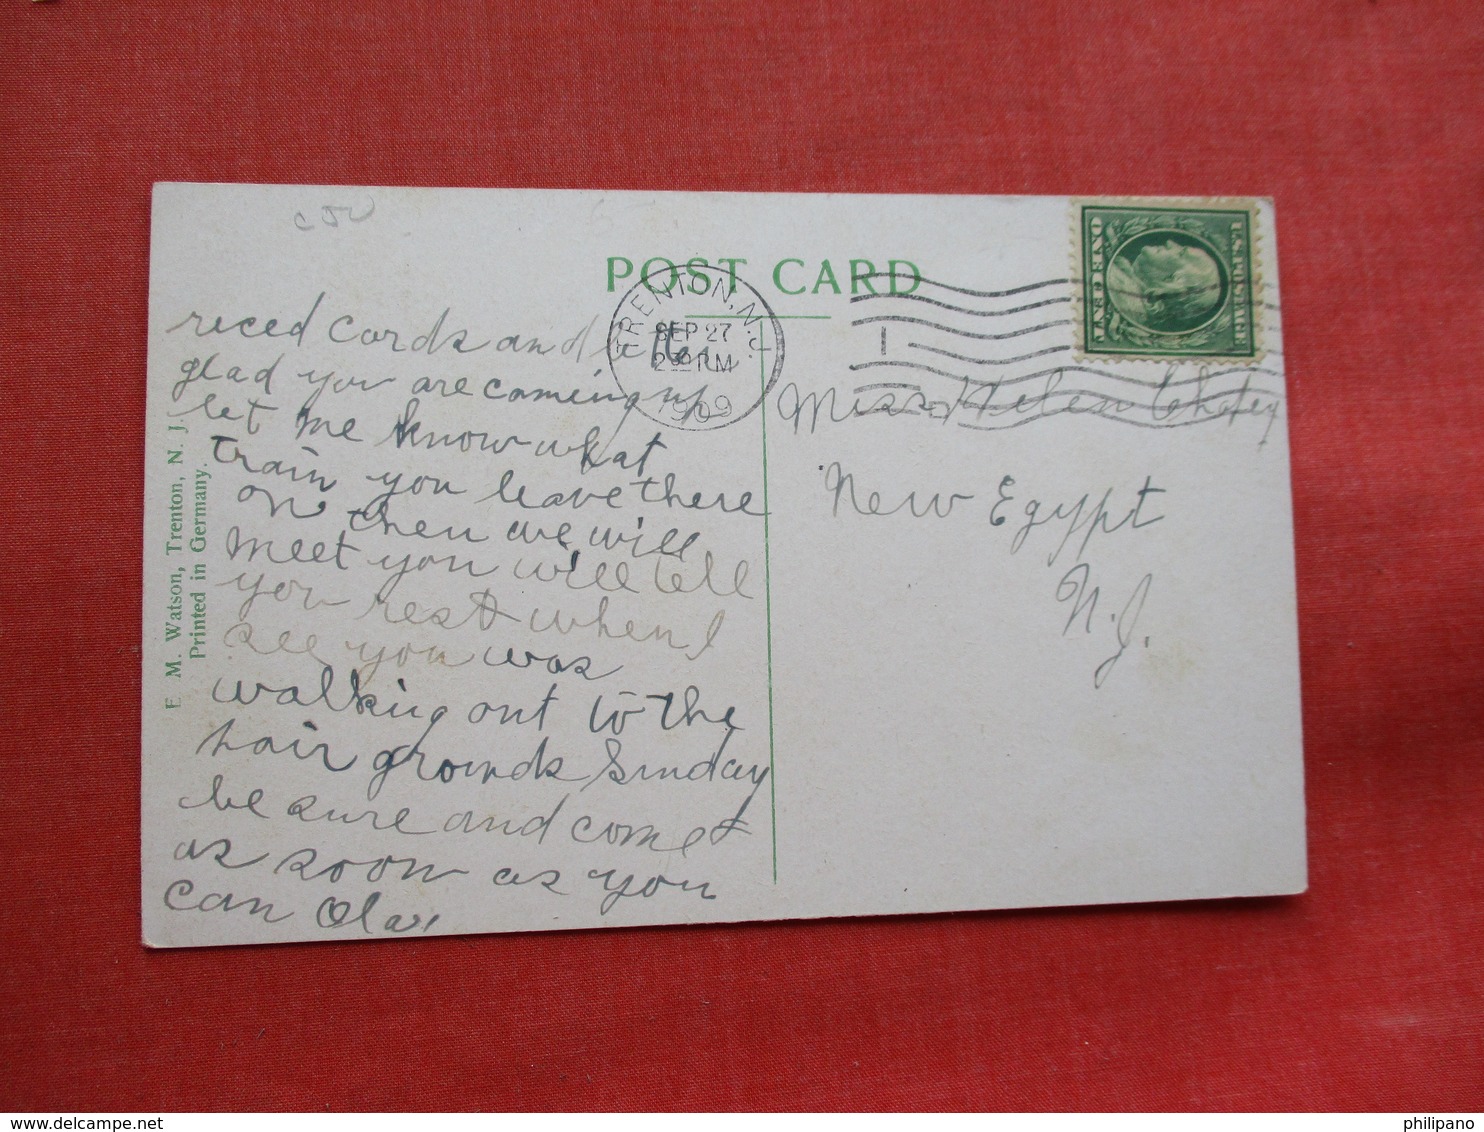 POST CARD
TRENTON, N.J.
SEP 27
2 30 PM
1909
1
U.S. POSTAGE
ONE CENT
reced cards and letter
glad you are coming up
let me know what
train you leave there
on then we will
meet you will tell
you rest when I
see you was
walking out to the
fair grounds Sunday
be sure and come
as soon as you
can Ola
Miss Helen
New Egypt
N.J.
E. M. Watson, Trenton, N. J.
Printed in Germany.
philipano